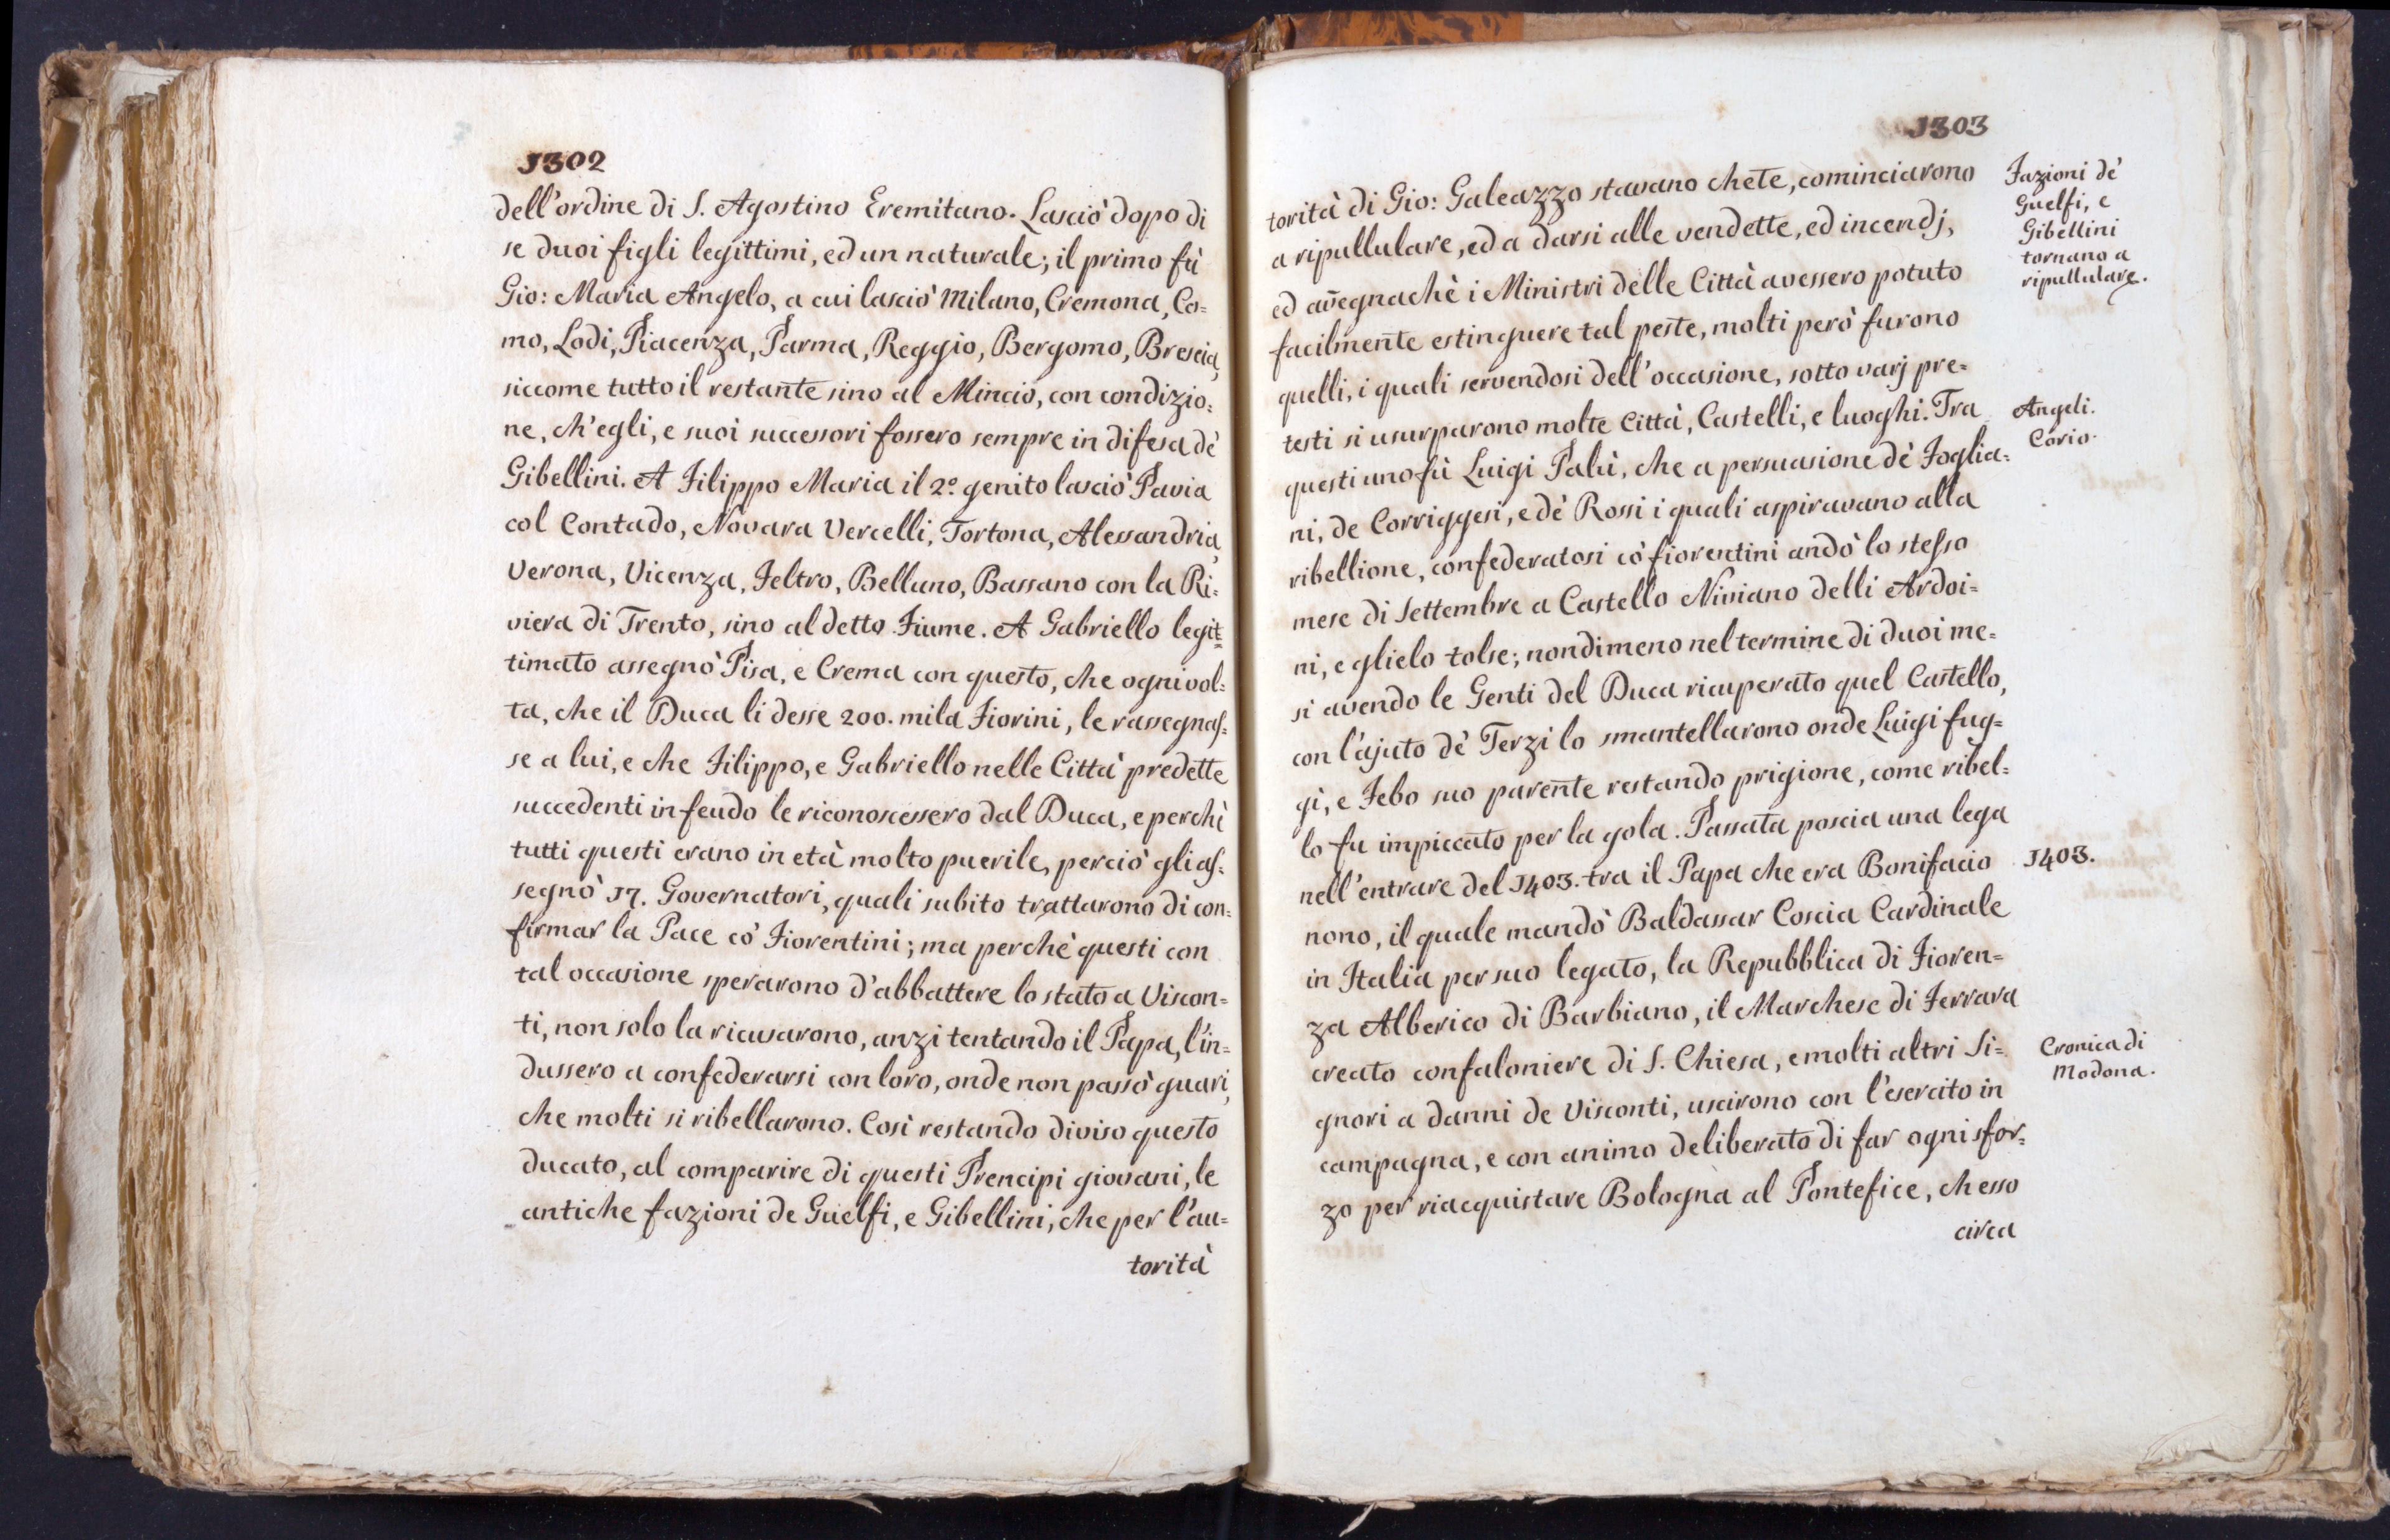 1302
dell'ordine di S. Agostino Eremitano. Lasciò dopo di
se duoi figli legittimi, ed un naturale; il primo fù
Gio: Maria Angelo, a cui lasciò Milano, Cremona, Co=
mo, Lodi, Piacenza, Parma, Reggio, Bergomo, Brescia,
siccome tutto il restante sino al Mincio, con condizio=
ne, ch'egli, e suoi successori fossero sempre in difesa dè
Gibellini. A Filippo Maria il 2.º genito lasciò Pavia
col Contado, Novara Vercelli, Tortona, Alessandria,
Verona, Vicenza, Feltro, Belluno, Bassano con la Ri=
viera di Trento, sino al detto Fiume. A Gabriello legit=
timato assegnò Pisa, e Crema con questo, che ogni vol=
ta, che il Duca li desse 200. mila Fiorini, le rassegnas=
se a lui, e che Filippo, e Gabriello nelle Città predette
succedenti in feudo le riconoscessero dal Duca, e perchè
tutti questi erano in età molto puerile, perciò gli as=
segnò 17. Governatori, quali subito trattarono di con=
firmar la Pace cò Fiorentini; ma perchè questi con
tal occasione sperarono d'abbattere lo stato a Viscon=
ti, non solo la ricusarono, anzi tentando il Papa, l'in=
dussero a confederarsi con loro, onde non passò guari,
che molti si ribellarono. Così restando diviso questo
ducato, al comparire di questi Prencipi giovani, le
antiche fazioni de Guelfi, e Gibellini, che per l'au=
torità
1303
torità di Gio: Galeazzo stavano chete, cominciarono
a ripullulare, ed a darsi alle vendette, ed incendj,
ed avegnachè i Ministri delle Città avessero potuto
facilmente estinguere tal peste, molti però furono
quelli, i quali servendosi dell'occasione, sotto varj pre=
testi si usurparono molte Città, Castelli, e luoghi. Tra
questi uno fù Luigi Palù, che a persuasione dè Foglia=
ni, de Corriggesi, e dè Rossi i quali aspiravano alla
ribellione, confederatosi cò fiorentini andò lo stesso
mese di Settembre a Castello Niviano delli Ardoi=
ni, e glielo tolse; nondimeno nel termine di duoi me=
si avendo le Genti del Duca ricuperato quel Castello,
con l'ajuto dè Terzi lo smantellarono onde Luigi fug=
gì, e Febo suo parente restando prigione, come ribel=
lo fu impiccato per la gola. Passata poscia una lega
nell'entrare del 1403. tra il Papa che era Bonifacio
nono, il quale mandò Baldassar Coscia Cardinale
in Italia per suo legato, la Repubblica di Fioren=
za Alberico di Barbiano, il Marchese di Ferrara
creato confaloniere di S. Chiesa, e molti altri Si=
gnori a danni de Visconti, uscirono con l'esercito in
campagna, e con animo deliberato di far ogni sfor=
zo per riacquistare Bologna al Pontefice, ch esso
circa
Fazioni dè
Guelfi, e
Gibellini
tornano a
ripullulare.
Angeli.
Corio.
1403.
Cronica di
Modona.